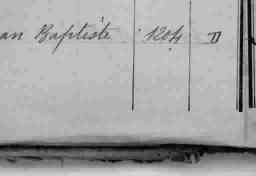 an Baptiste 1204 D